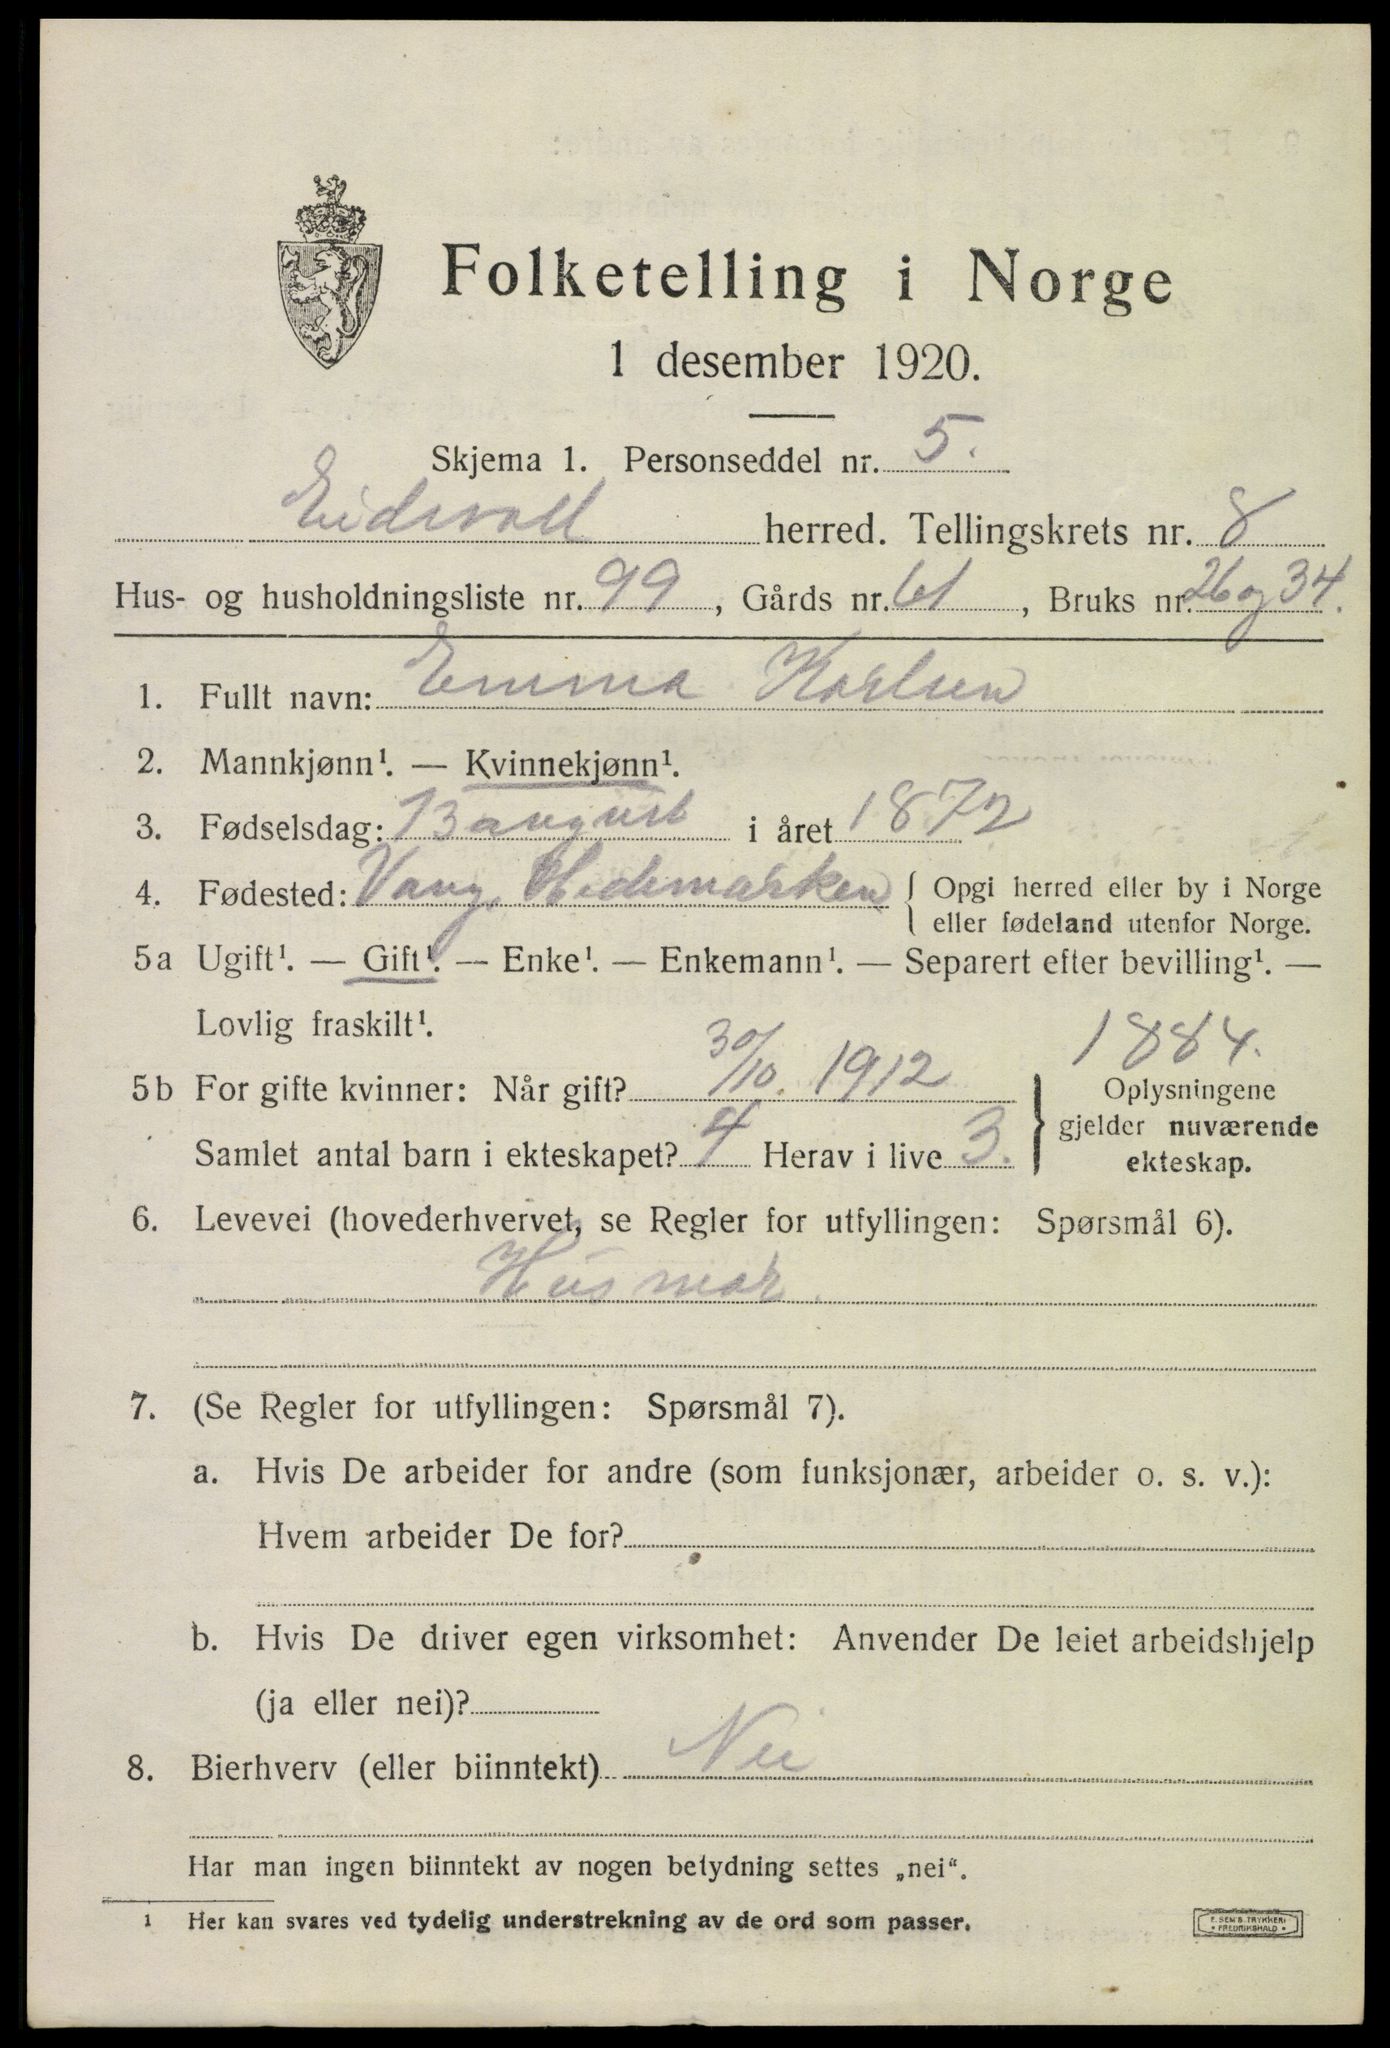 Folketelling i Norge
1 desember 1920.
Skjema 1. Personseddel nr. 5.
Eidsvoll herred. Tellingskrets nr. 8
Hus- og husholdningsliste nr. 99, Gårds nr. 61, Bruks nr. 26 og 34.
1. Fullt navn: Emma Karlsen
2. Mannkjønn¹. — Kvinnekjønn¹.
3. Fødselsdag: 13 august i året 1872
4. Fødested: Vang, Hedemarken { Opgi herred eller by i Norge
eller fødeland utenfor Norge.
5a Ugift¹. — Gift¹. — Enke¹. — Enkemann¹. — Separert efter bevilling¹. —
Lovlig fraskilt¹.
1884.
5b For gifte kvinner: Når gift? 30/10. 1912
Samlet antal barn i ekteskapet? 4 Herav i live 3.
Oplysningene
gjelder nuværende
ekteskap.
6. Levevei (hovederhvervet, se Regler for utfyllingen: Spørsmål 6).
Husmor.
7. (Se Regler for utfyllingen: Spørsmål 7).
a. Hvis De arbeider for andre (som funksjonær, arbeider o. s. v.):
Hvem arbeider De for?
b. Hvis De driver egen virksomhet: Anvender De leiet arbeidshjelp
(ja eller nei)?
8. Bierhverv (eller biinntekt) Nei
Har man ingen biinntekt av nogen betydning settes „nei“.
¹ Her kan svares ved tydelig understrekning av de ord som passer.
E. SEM'S TRYKKERI
• FREDRIKSHALD •